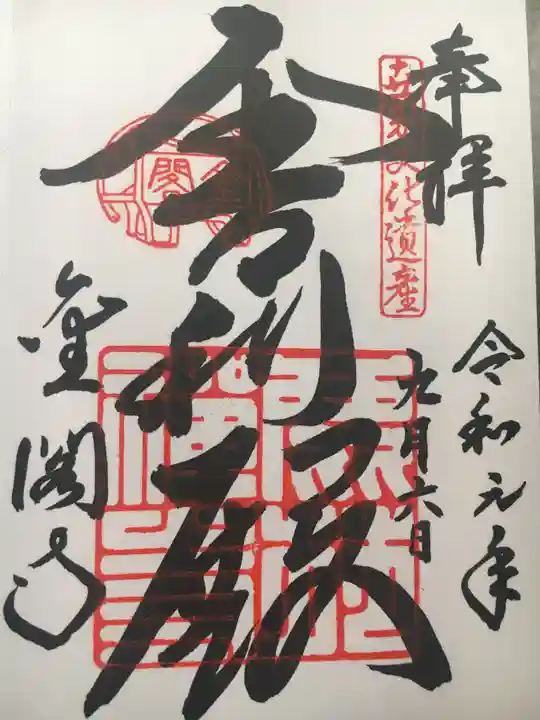 奉拝
令和元年
九月六日
世界文化遺産
舎利殿
金閣寺